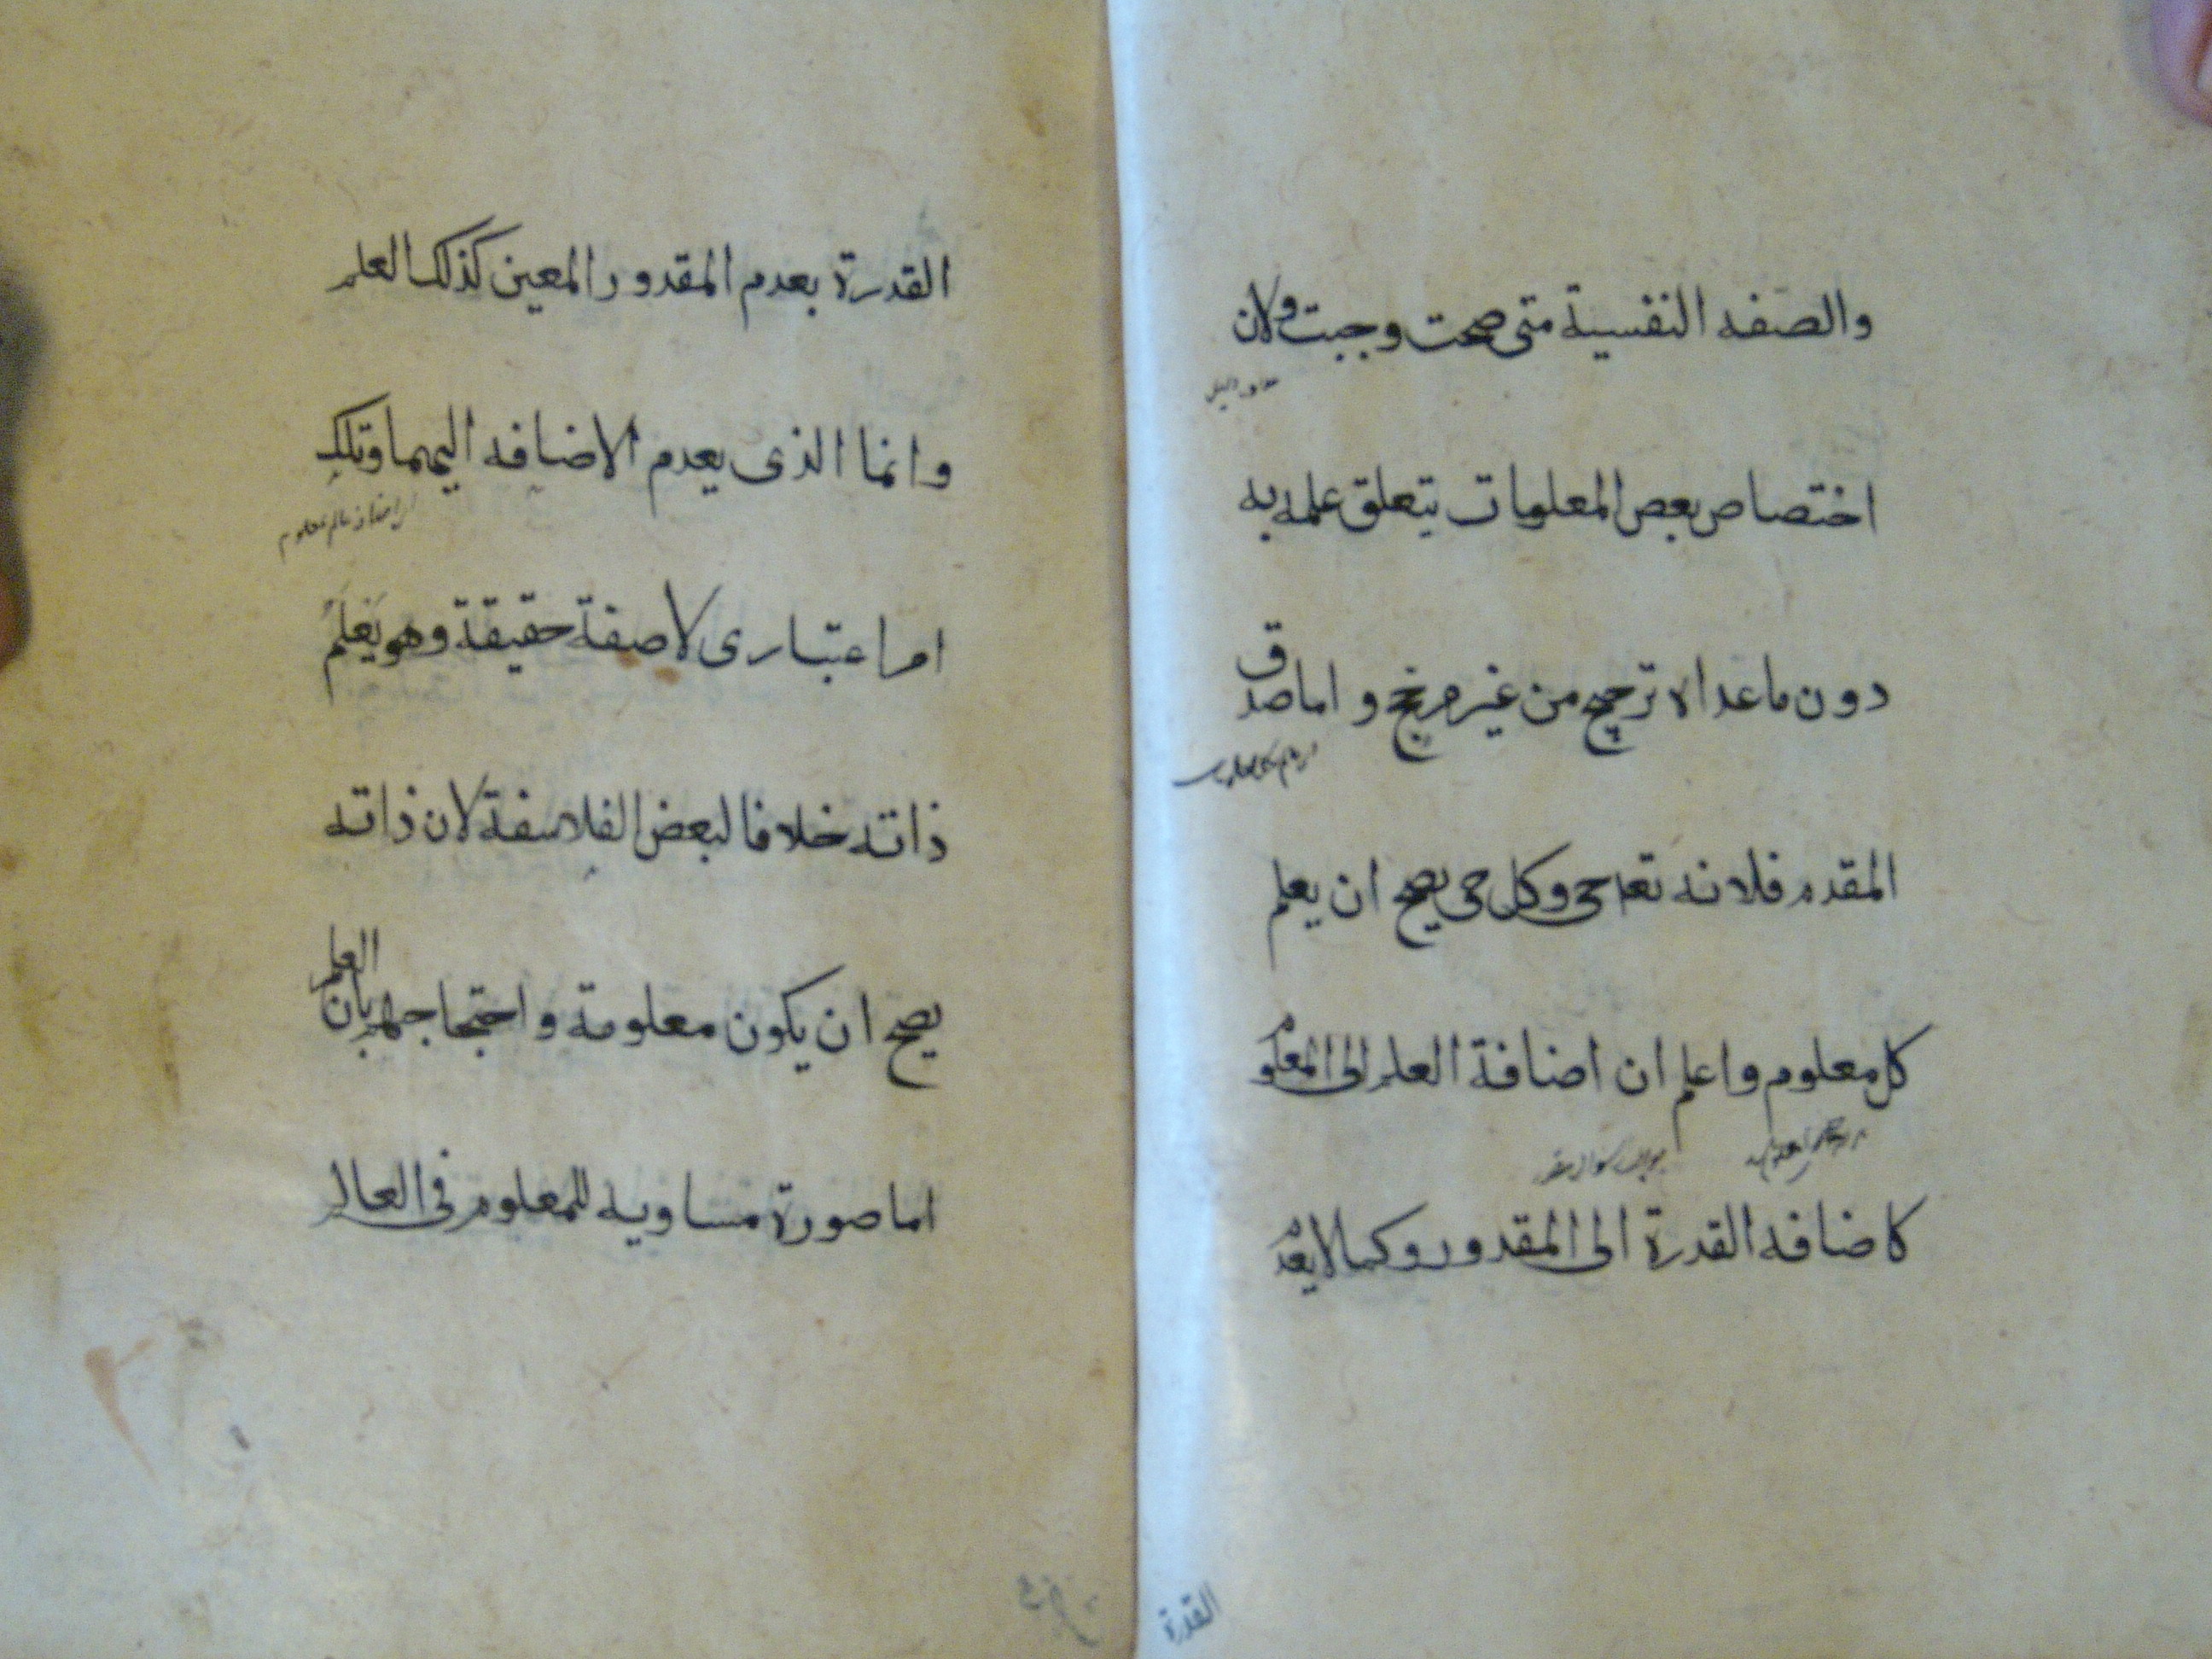 والصفه النفسية متى صحت وجبت ولان
اختصاص بعض المعلومات يتعلق علمه به
دون ماعداه ترجيح من غير مرجح و اما صدق
المقدم فلانه تعا حى وكل حى يصح ان يعلم
كل معلوم واعلم ان اضافة العلم الى المعلوم
كاضافه القدرة الى المقدور وكما لا يعدم
القدرة
القدرة بعدم المقدور المعين كذلك العلم
وانما الذى يعدم الاضافه اليهما وتلك
امر اعتبارى لا صفة حقيقة وهو يعلم
ذاته خلافا لبعض الفلاسفة لان ذاته
يصح ان يكون معلومة واحتجاجهم بان العلم
اما صورة مساويه للمعلوم فى العالم